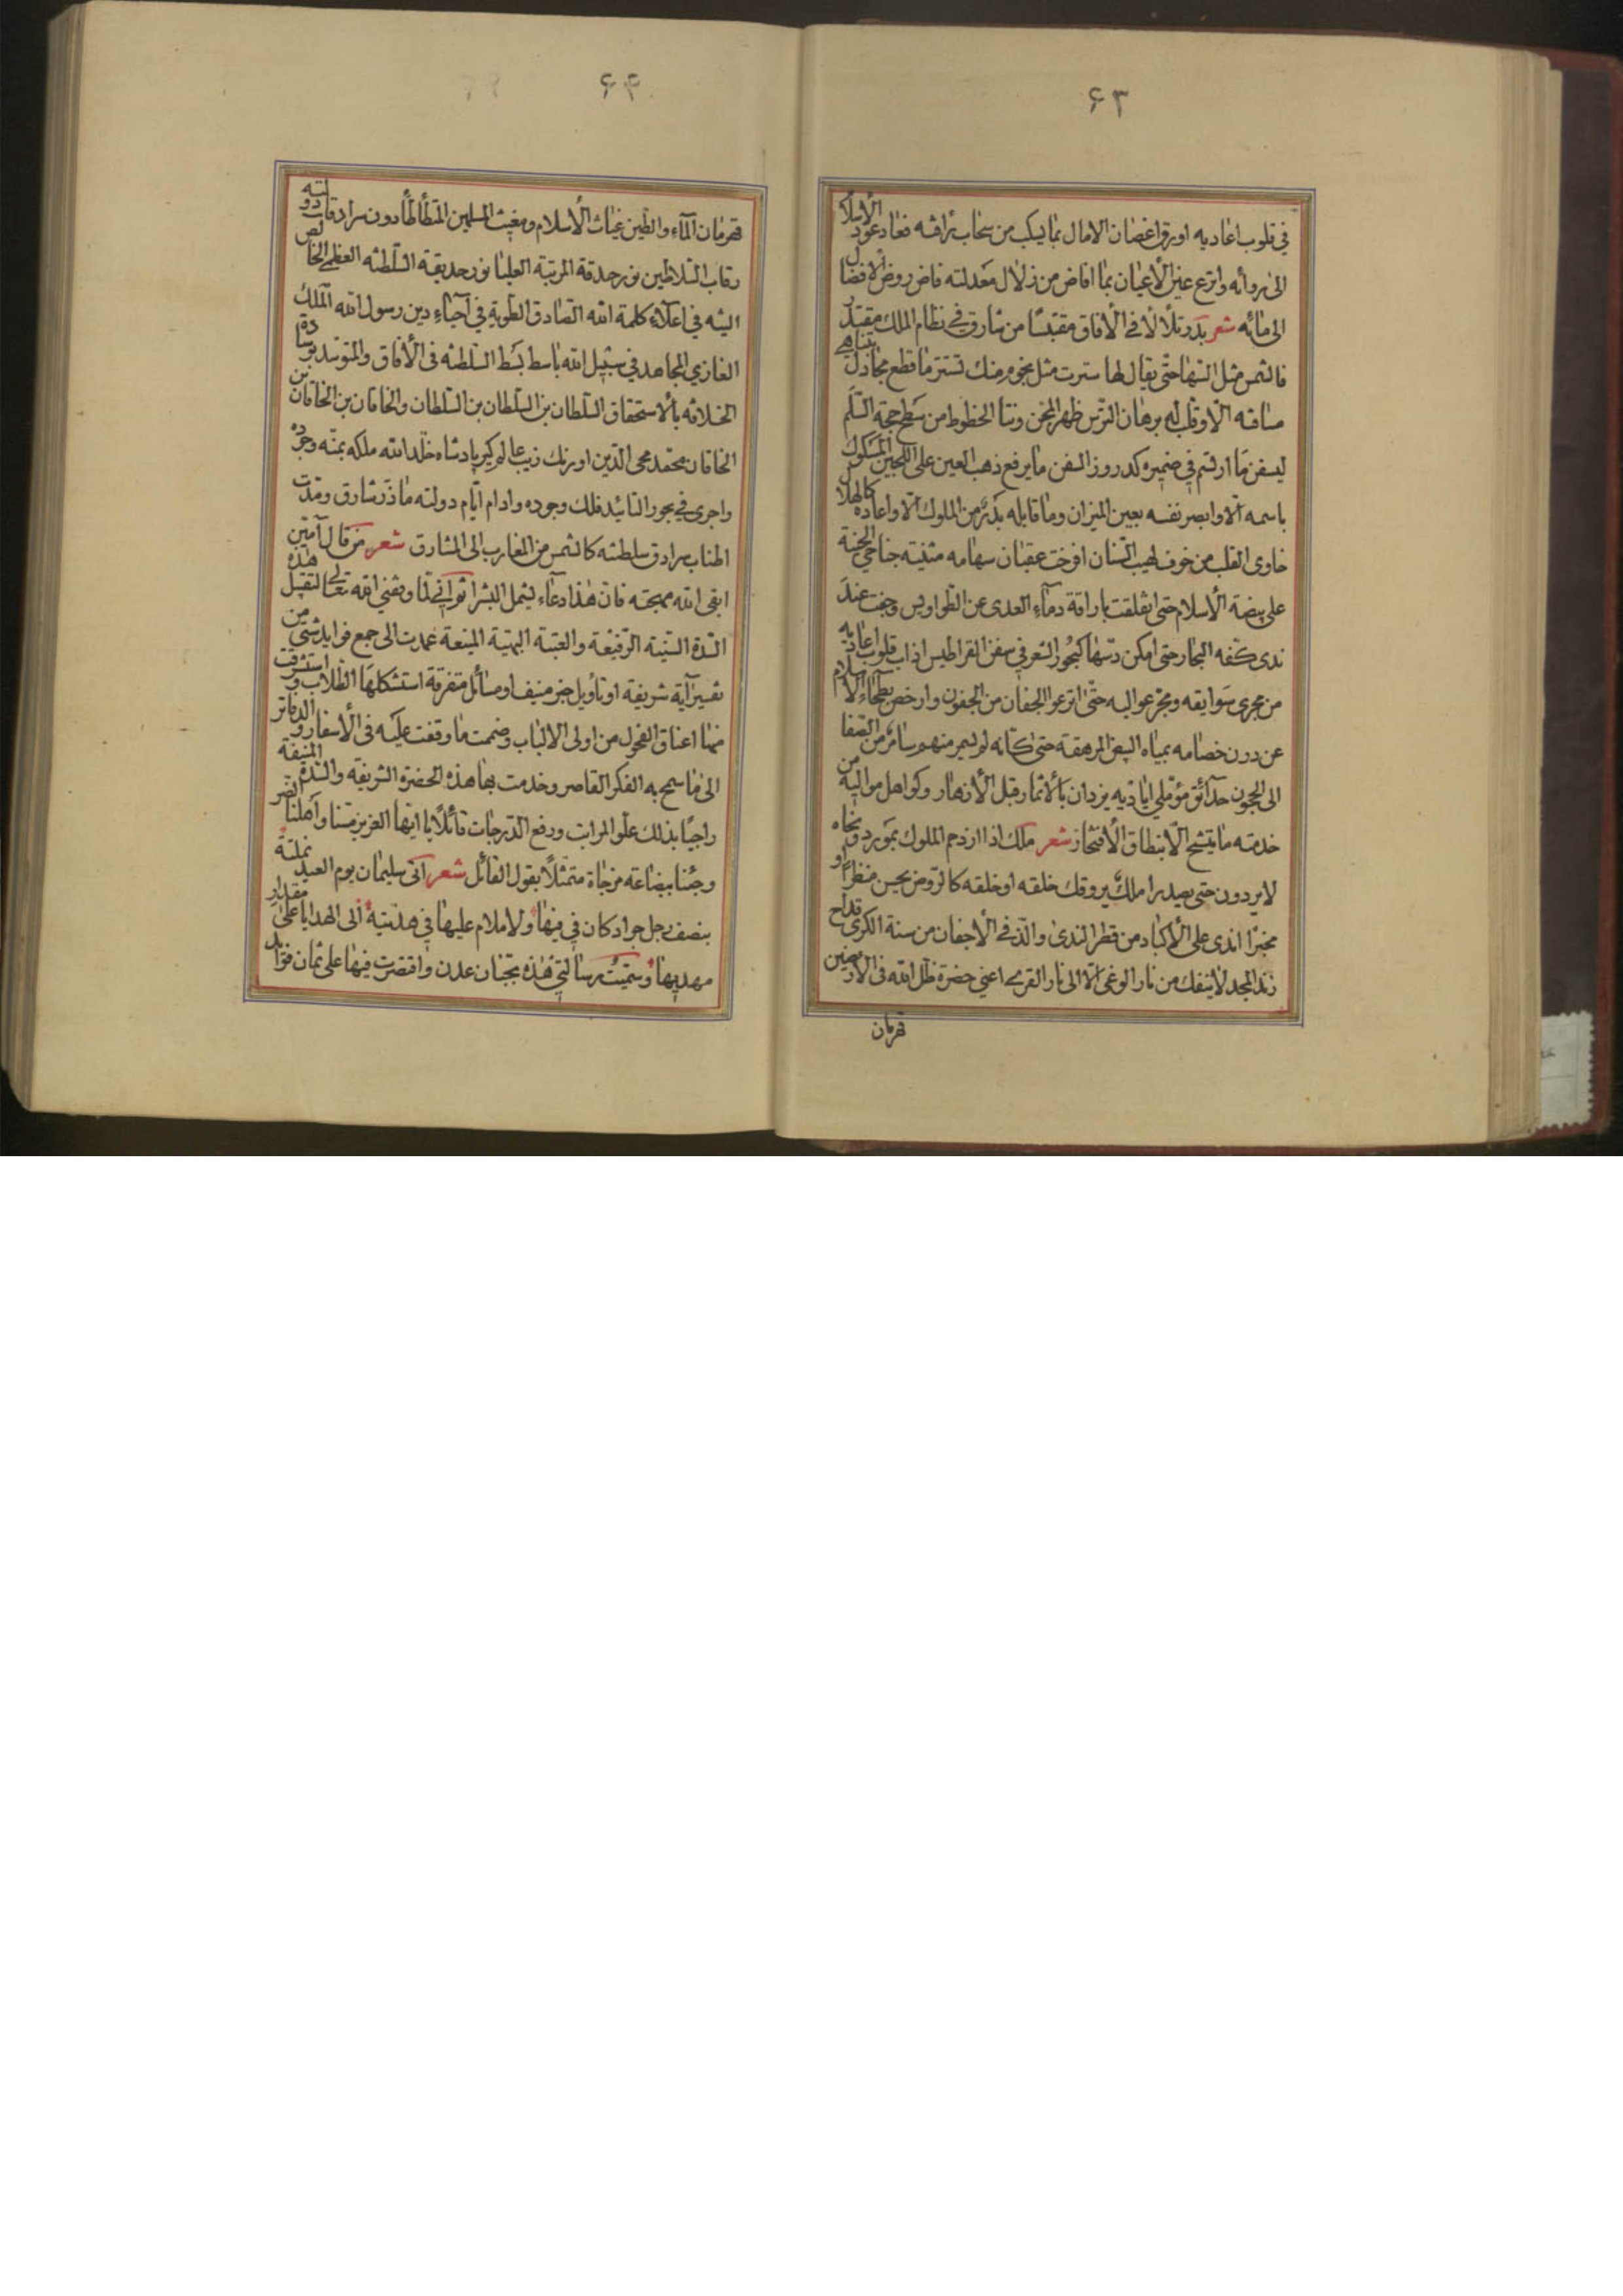 ۶۳
في قلوب اعاديه اورق اغصان الامال بما يسكب من سحاب رافته فعاد عود الاسلام
الى روائه واترع عين الاعيان بما افاض من زلال معدلته فاض روض الافضال
الى مائه شعر بدر تلألأ في الآفاق مقتبسًا من شارق في نظام الملك مقتدر
فالشمس مثل السها حتى يقال لها سترت مثل نجوم منك تستتر ما قطع مجادل بتناهي
مسافته الا وقلب له برهان الترس ظهر المجن وبنا الخطوط من سطح حجة السلم
ليسفن ما ارتسم في ضميره كدروز السفن ما يرفع ذهب العين على اللجين المسكوك
باسمه الا وابصر نفسه بعين الميزان وما قابله بدر من الملوك الا واعاده كالهلال
خاوى القلب من خوف لهيب السنان افرخت عقبان سهامه مثنية جناحي الجنة
على بيضة الاسلام حتى انفلقت باراقة دماء العدى عن الطواويس وجفت عند
ندى كفه البحار حتى امكن دسها كبحور الشعر في سفن القراطيس اذاب قلوب اعاديه
من مجرى سوابقه ومجر عواليه حتى اترعوا الجفان من الجفون وارخص بطحاء الاسلام
عن درن خصامه بمياه البيض المرهفة حتى كانه لم يسمر منهم سامر من الصفا
الى الحجون حدائق مؤملي اياديه يزدان بالاثمار قبل الازهار وكواهل مواليه من
خدمته ما يتشح الا بنطاق الافتخار شعر ملك اذا ازدحم الملوك بمورد ونحاه
لا يردون حتى يصدرا ملك يروقك خلقه او خلقه كالروض يحسن منظرًا او
مخبرًا اندى على الاكباد من قطر الندى والذ في الاجفان من سنة الكرى قداح
زند المجد لا ينفك من نار الوغى الا الى نار القرى اعني حضرة ظل الله في الارضين
قهرمان
۶۴
قهرمان الماء والطين غياث الاسلام ومغيث المسلمين المتطأطأ دون سرادقات دولته
رقاب السلاطين نور حدقة المرتبة العليا نور حديقة السلطنة العظمى الخالص
النية في اعلاء كلمة الله الصادق الطوية في احياء دين رسول الله الملك
الغازي المجاهد في سبيل الله باسط بسط السلطنة في الآفاق والمتوسد بوسادة
الخلافة بالاستحقاق السلطان بن السلطان بن السلطان والخاقان بن الخاقان بن
الخاقان محمد محى الدين اورنك زيب عالمكير پادشاه خلد الله ملكه بمنه وجوده
واجرى في بحور التائيد فلك وجوده وادام ايام دولته ما ذر شارق ومدت
اطناب سرادق سلطنته كالشمس من المغارب الى المشارق شعر من قال آمين
ابقى الله مهجته فان هذا دعاء ليشمل البشرا ثم اني لما وفقني الله تعالى لتقبيل هذه
السدة السنية الرفيعة والعتبة البهية المنيعة عمدت الى جمع فوايد شتى من
تفسير آية شريفة او تأويل خبر منيف او مسائل متفرقة استشكلها الطلاب واستشرفت
منها اعناق الفحول من اولى الالباب وضممت ما وقفت عليه في الاسفار والدفاتر
الى ما سمح به الفكر القاصر وخدمت بها هذه الحضرة الشريفة والسدة المنيفة
راجيًا بذلك علو المراتب ورفع الدرجات قائلًا يا ايها العزيز مسنا واهلنا الضر
وجئنا ببضاعة مزجاة متمثلًا بقول القائل شعر اتى سليمان يوم العيد نملته
بنصف رجل جراد كان في فيها ولا ملام عليها في هديتها ان الهدايا على مقدار
مهديها وسميت رسالتي هذه بجنان عدن واقتصرت فيها على ثمان فوائد